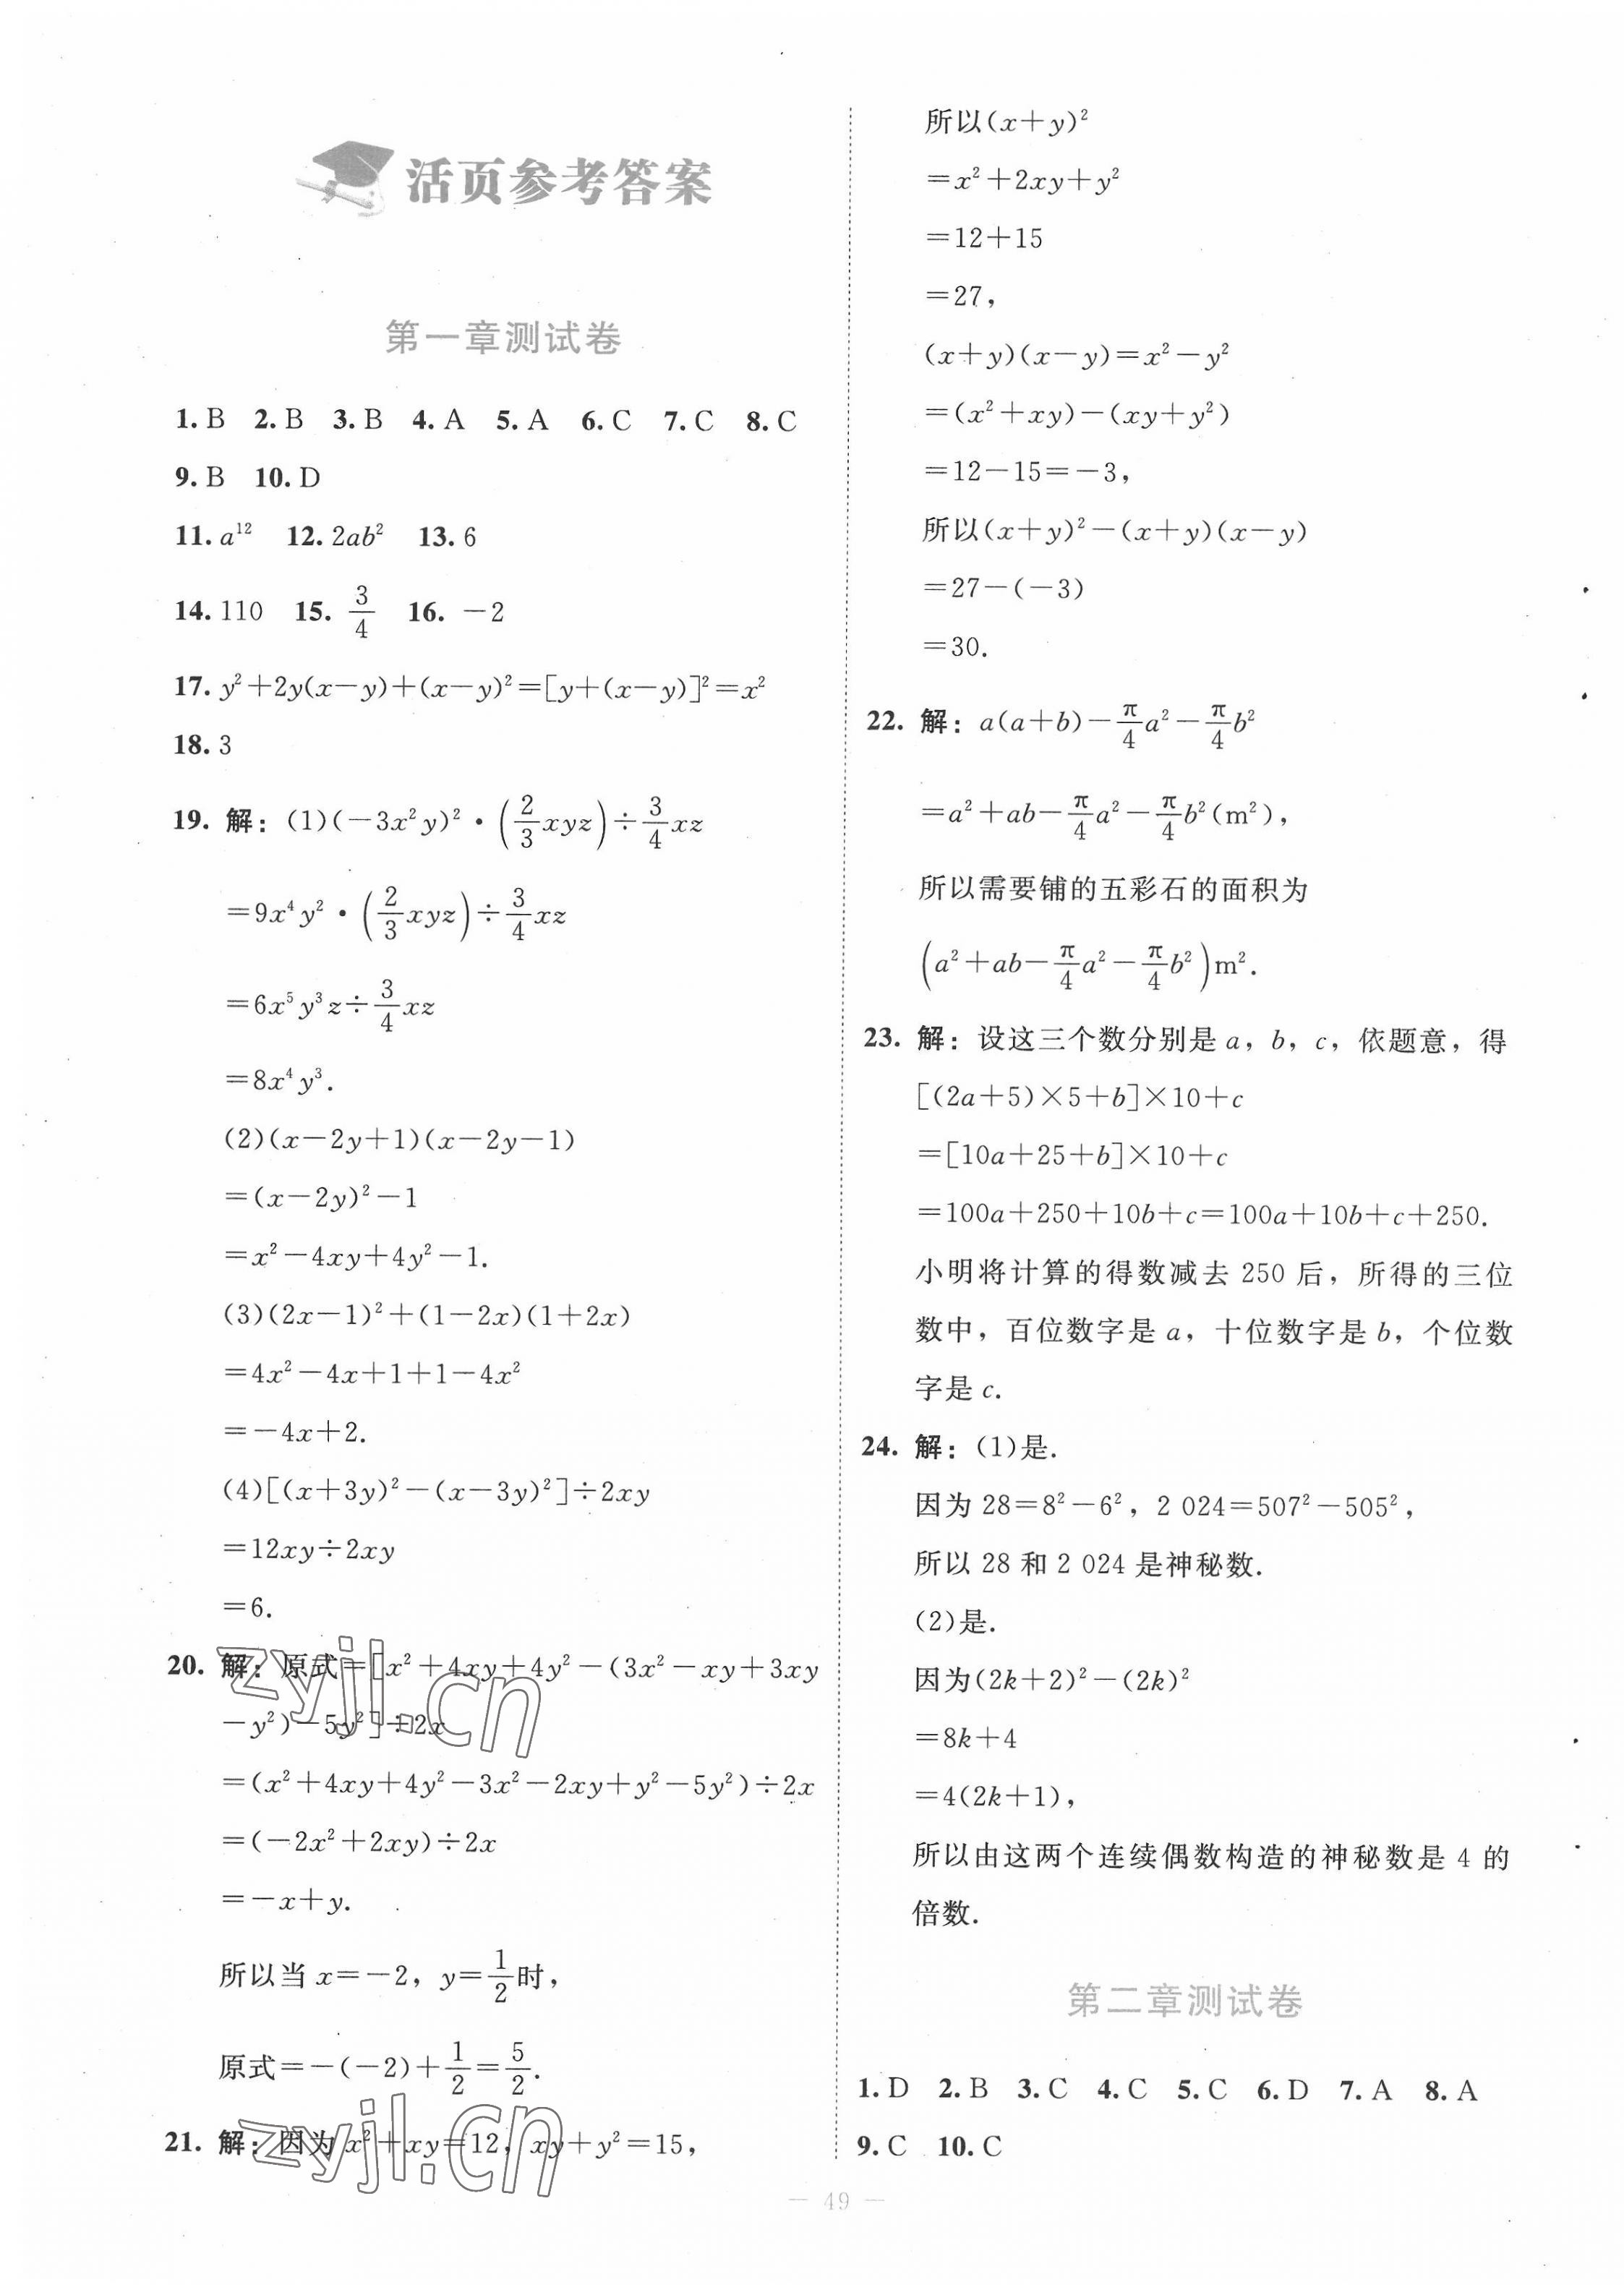 活页参考答案
第一章测试卷
1. B 2. B 3. B 4. A 5. A 6. C 7. C 8. C
9. B 10. D
11. a¹² 12. 2ab² 13. 6
14. 110 15. 3/4 16. －2
17. y²＋2y(x－y)＋(x－y)²＝[y＋(x－y)]²＝x²
18. 3
19. 解：(1)(－3x²y)²·(2/3xyz)÷3/4xz
＝9x⁴y²·(2/3xyz)÷3/4xz
＝6x⁵y³z÷3/4xz
＝8x⁴y³.
(2)(x－2y＋1)(x－2y－1)
＝(x－2y)²－1
＝x²－4xy＋4y²－1.
(3)(2x－1)²＋(1－2x)(1＋2x)
＝4x²－4x＋1＋1－4x²
＝－4x＋2.
(4)[(x＋3y)²－(x－3y)²]÷2xy
＝12xy÷2xy
＝6.
20. 解：原式＝[x²＋4xy＋4y²－(3x²－xy＋3xy
－y²)－5y²]÷2x
＝(x²＋4xy＋4y²－3x²－2xy＋y²－5y²)÷2x
＝(－2x²＋2xy)÷2x
＝－x＋y.
所以当 x＝－2，y＝1/2时，
原式＝－(－2)＋1/2＝5/2.
21. 解：因为 x²＋xy＝12，xy＋y²＝15，
所以(x＋y)²
＝x²＋2xy＋y²
＝12＋15
＝27，
(x＋y)(x－y)＝x²－y²
＝(x²＋xy)－(xy＋y²)
＝12－15＝－3，
所以(x＋y)²－(x＋y)(x－y)
＝27－(－3)
＝30.
22. 解：a(a＋b)－π/4a²－π/4b²
＝a²＋ab－π/4a²－π/4b²(m²)，
所以需要铺的五彩石的面积为
(a²＋ab－π/4a²－π/4b²)m².
23. 解：设这三个数分别是 a，b，c，依题意，得
[(2a＋5)×5＋b]×10＋c
＝[10a＋25＋b]×10＋c
＝100a＋250＋10b＋c＝100a＋10b＋c＋250.
小明将计算的得数减去 250 后，所得的三位
数中，百位数字是 a，十位数字是 b，个位数
字是 c.
24. 解：(1)是.
因为 28＝8²－6²，2 024＝507²－505²，
所以 28 和 2 024 是神秘数.
(2)是.
因为(2k＋2)²－(2k)²
＝8k＋4
＝4(2k＋1)，
所以由这两个连续偶数构造的神秘数是 4 的
倍数.
第二章测试卷
1. D 2. B 3. C 4. C 5. C 6. D 7. A 8. A
9. C 10. C
— 49 —
zyjl.cn
zyjl.cn